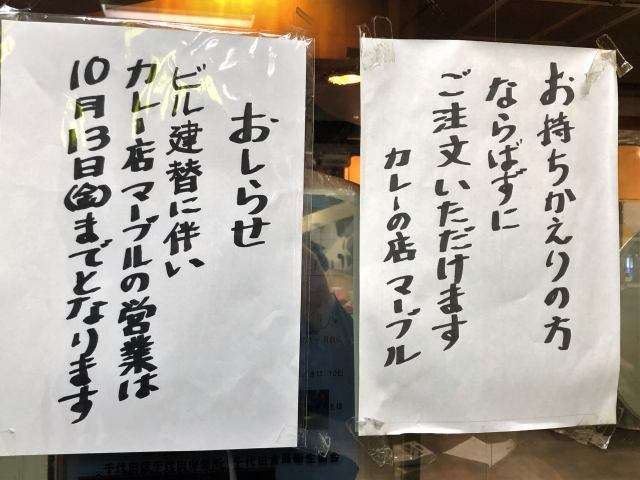 お持ちかえりの方
ならばずに
ご注文いただけます
カレーの店 マーブル
おしらせ
ビル建替に伴い
カレー店マーブルの営業は
10月13日(金)までとなります